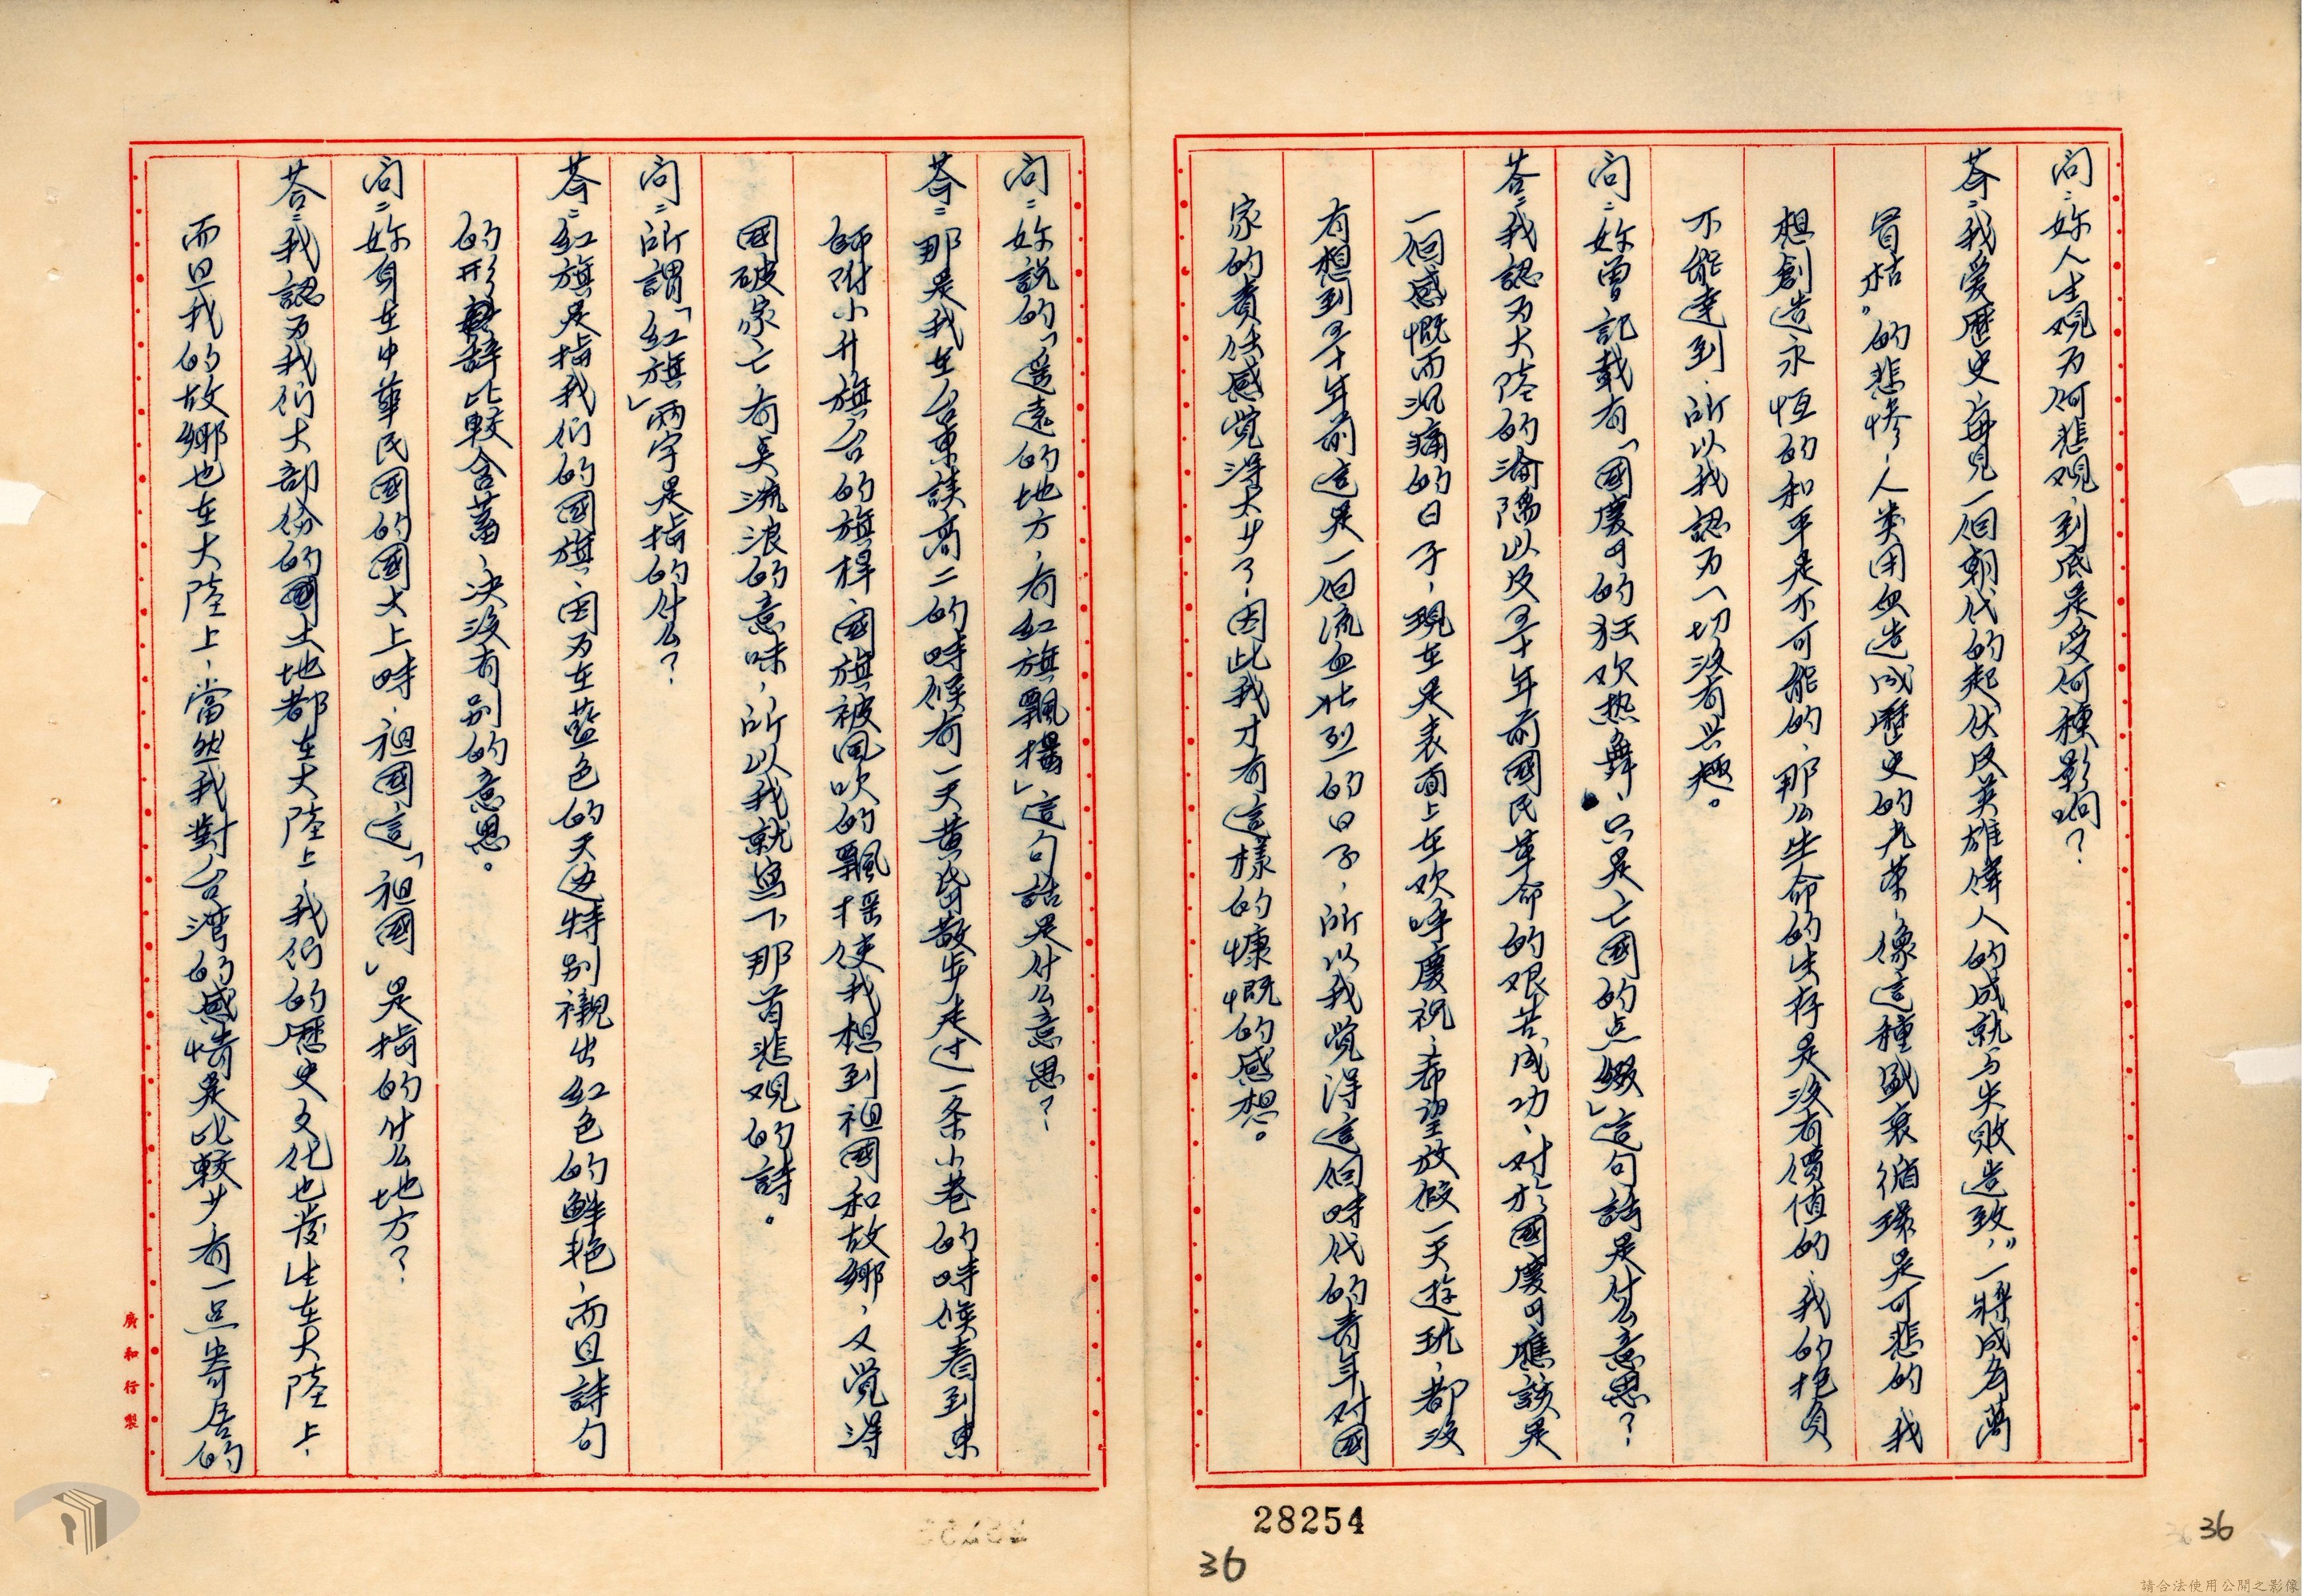 問：妳人生观为何悲观，到底是受何種影响？
答：我爱歷史，每見一個朝代的起伏及英雄偉人的成就与失敗造致，“一將成名萬
骨枯”的悲慘，人类用血造成歷史的光荣，像這種盛衰循環是可悲的，我
想創造永恒的和平是不可能的，那么生命的生存是沒有價值的，我的抱負
不能達到，所以我認为一切沒有兴趣。
問：妳曾記載有「國慶日的狂欢热舞，只是亡國的点缀」這句話是什么意思？
答：我認为大陸的淪陷以及五十年前國民革命的艰苦成功，对於國慶日應該是
一個感慨而沉痛的日子，現在是表面上在欢呼慶祝，希望放假一天遊玩，都沒
有想到五十年前這是一個流血壮烈的日子，所以我覚得這個時代的青年对國
家的責任感覚得太少了，因此我才有這樣的慷慨的感想。
問：妳説的「遥遠的地方，有紅旗飄揚」這句話是什么意思？
答：那是我在台東讀高二的時候有一天黄昏散步走过一条小巷的時候看到東
師附小升旗台的旗桿，國旗被风吹的飄摇使我想到祖國和故鄉，又覚得
國破家亡有点流浪的意味，所以我就寫下那首悲观的詩。
問：所謂「紅旗」兩字是指的什么？
答：紅旗是指我们的國旗，因为在藍色的天边特别襯出紅色的鮮艳，而且詩句
的形辭比較含蓄，决沒有别的意思。
問：妳身在中華民國的國土上時，祖國這「祖國」是指的什么地方？
答：我認为我们大部份的國土地都在大陸上，我们的歷史文化也發生在大陸上，
而且我的故鄉也在大陸上，當然我對台湾的感情是比較少，有一点寄居的
廣和行製
28254
36
36
請合法使用公開之影像